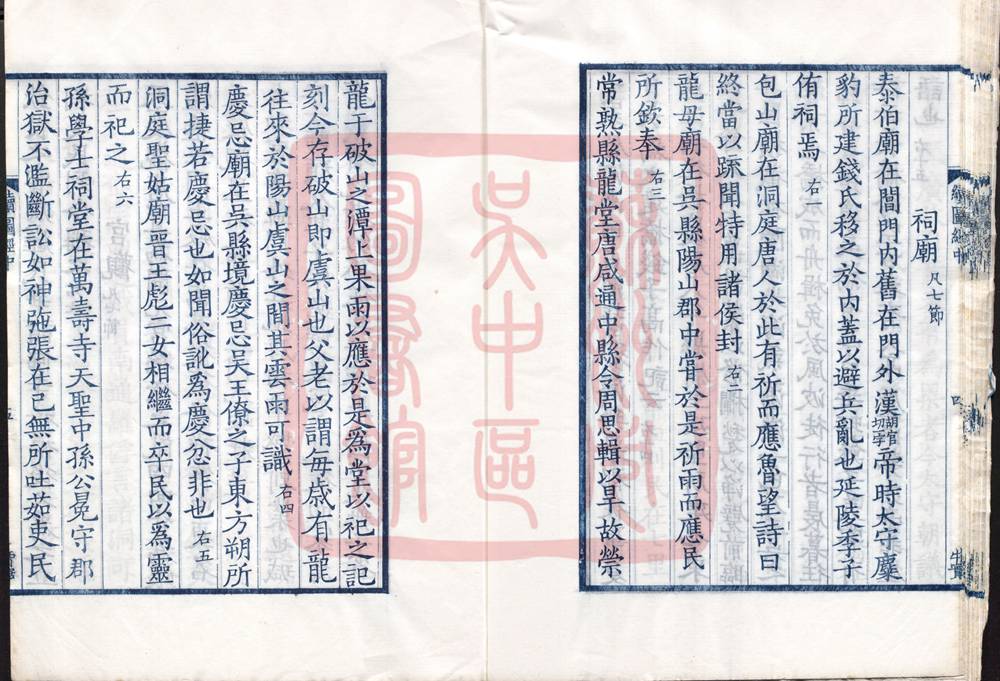 祠廟 凡七節
泰伯廟在閶門內舊在門外漢胡官切字帝時太守麋
豹所建錢氏移之於內蓋以避兵亂也延陵季子
侑祠焉 右一
包山廟在洞庭唐人於此有祈而應魯望詩曰
終當以疎聞特用諸侯封 右二
龍母廟在吳縣陽山郡中嘗於是祈雨而應民
所欽奉 右三
常熟縣龍堂唐咸通中縣令周思輯以旱故禜
龍于破山之潭上果雨以應於是為堂以祀之記
刻今存破山即虞山也父老以謂每歲有龍
往來於陽山虞山之間其雲雨可識 右四
慶忌廟在吳縣境慶忌吳王僚之子東方朔所
謂捷若慶忌也如聞俗訛為慶忿非也 右五
洞庭聖姑廟晉王彪二女相繼而卒民以為靈
而祀之 右六
孫學士祠堂在萬壽寺天聖中孫公冕守郡
治獄不濫斷訟如神弛張在已無所吐茹吏民
續圖經中
四
續圖經中
五
吳中區